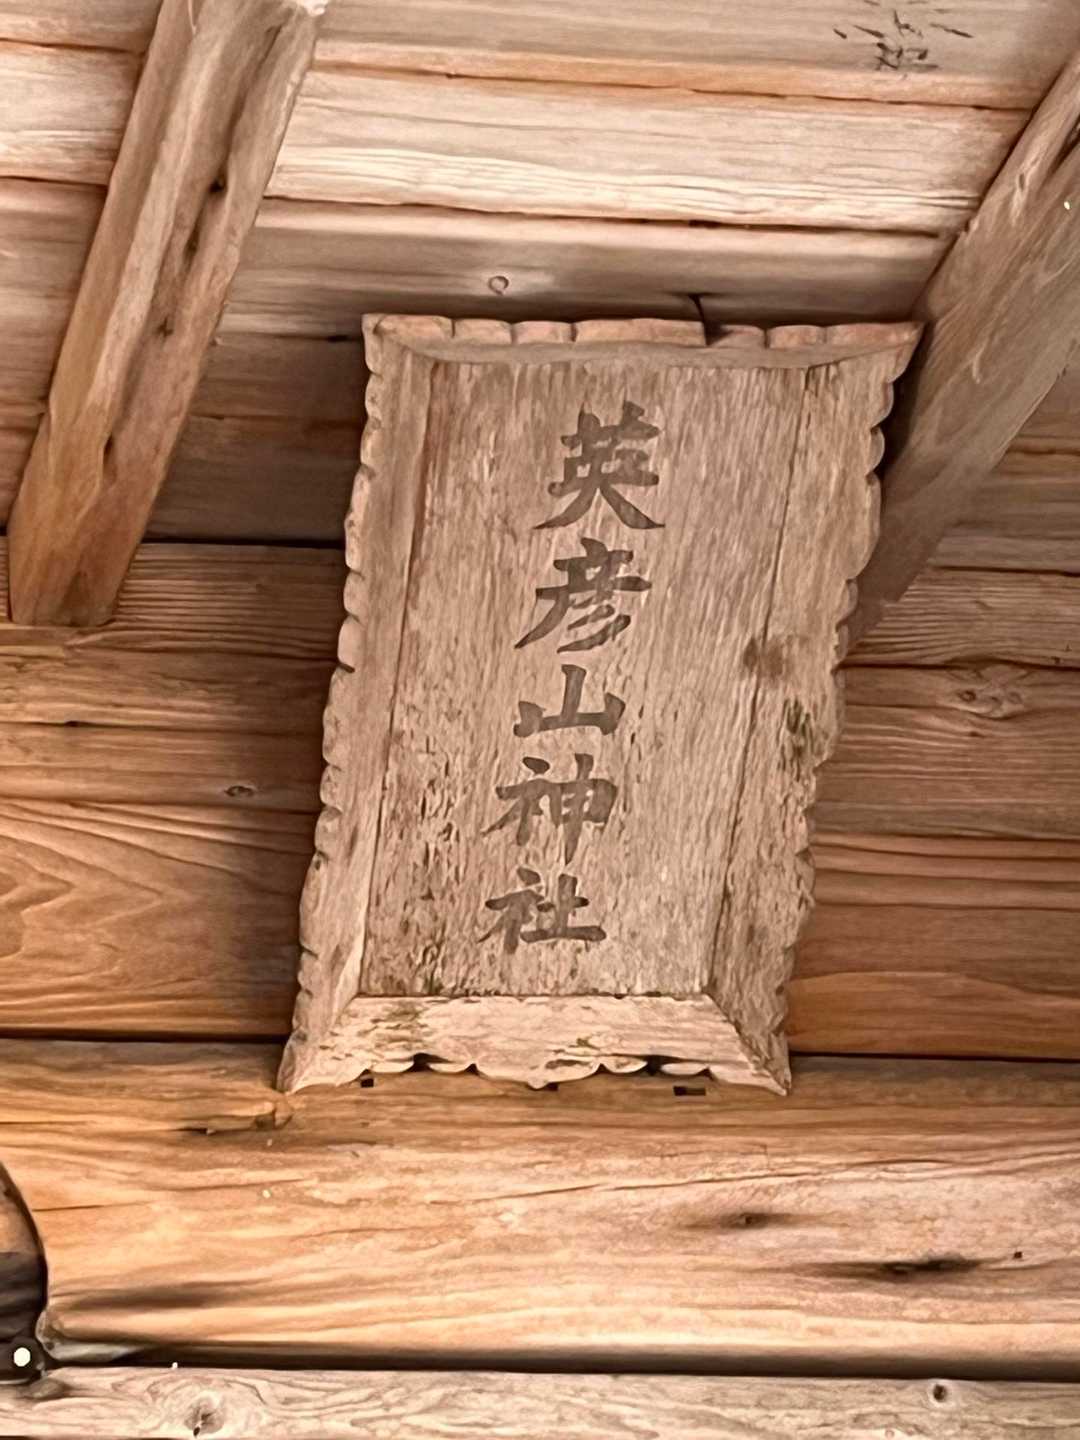 英彦山神社